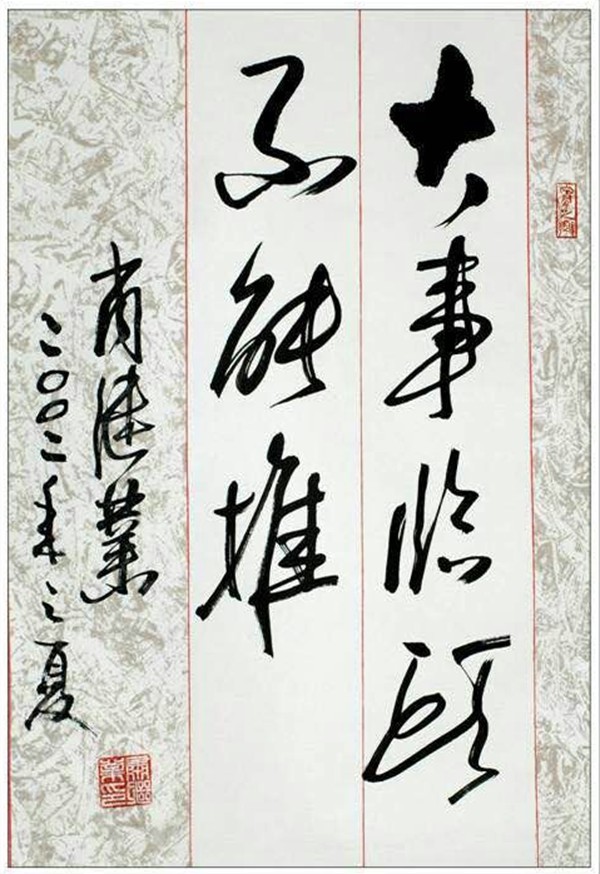 大事临頭
不能推
肖業
二〇〇二年之夏